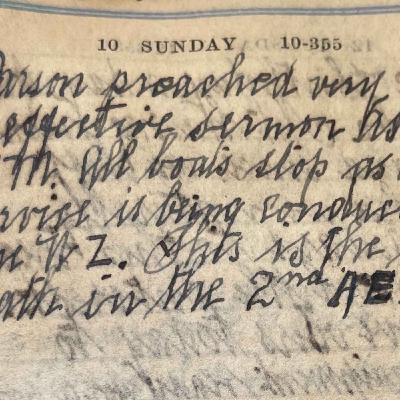 10 SUNDAY 10-355
arson preached very
effective sermon
All boats stop as
rvice is being conduc
NZ. This is the
ath in the 2nd AE